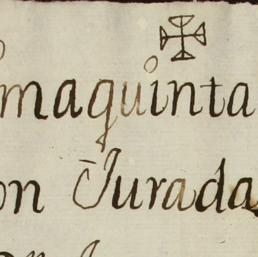 maquinta
on Juradas